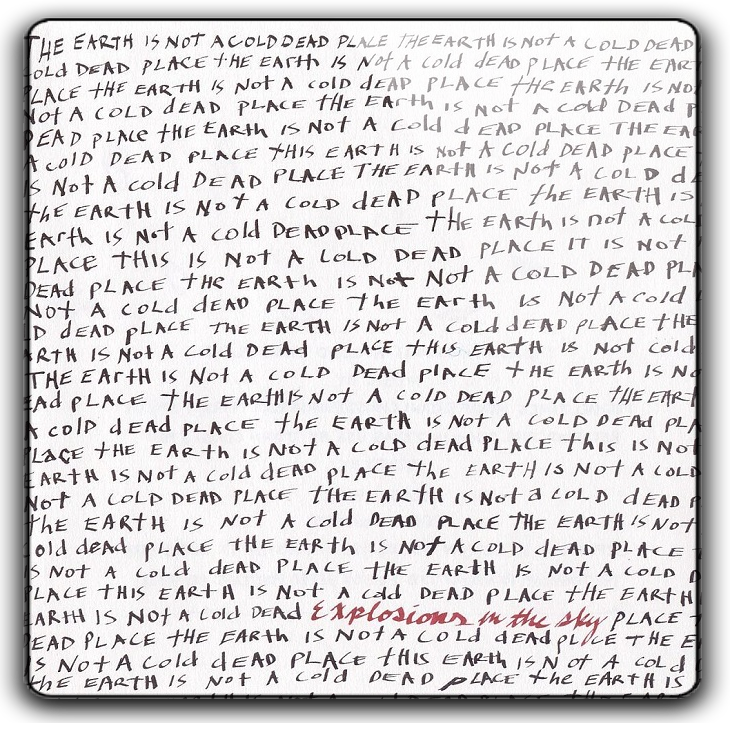 THE EARTH IS NOT A COLD DEAD PLACE THE EARTH IS NOT A COLD DEAD
Cold DEAD PLACE tHE EARth IS NOt A cold dEAD PLACE tHE EAR
PLACE tHE EARTH IS NOt A cold dEAD PLACE tHE EARth IS NO
NOt A COLD dEAD PLACE tHE EARth IS NOt A COLd DEAd P
DEAD PLACE tHE EARtH IS NOt A Cold dEAD PLACE THE EA
A COLD DEAD PLACE tHIS EARTH IS NOt A COLD DEAD PLACE
IS NOt A cold DEAD PLACE THE EARtH IS NOt A COLD d
the EARTH IS NOt A COLD dEAD PLACE thE EARTH IS
EARth IS NOt A cold DEAD PLACE tHE EARTH IS nOt A COL
PLACE THIS IS NOt A COLD DEAD PLACE IT IS NOt
DEAd PLACE tHE EARtH IS NOt NOt A COLD DEAD PL
NOt A COLd dEAD PLACE thE EARth IS NOt A Cold
LD dEAD PLACE tHE EARTH IS NOt A Cold dEAD PLACE tHE
ARTH IS NOt A Cold DEAd PLACE tHIS EARTH IS NOt cold
THE EArtH IS NOt A COLD DEAD plACE tHE EARtH IS NO
EAd PLACE tHE EARtH IS NOt A COLD DEAD PLACE tHE EART
A COLD DEAD PLACE thE EARtH IS NOt A COLD DEAd PLA
PLAcE tHE EARth IS NOt A COLD dEAd PLACE thIS IS NOt
EARTH IS NOt A cold dEAD PLACE the EARTH IS NOt A COLD
NOt A COLD DEAD PLACE tHE EARTH IS NOt a COLD dEAD P
thE EARTH IS NOt A Cold DEAD PLACE THE EARTH IS NOT
Cold deAd PLACE tHE EARth IS NOt A COLD dEAD PLACE
IS NOt A cOLd dEAD PLACE thE EARtH IS NOt A COLD D
PLACE tHIS EARtH IS NOt A COLd DEAD PLACE tHE EARtH
EARTH IS NOt A Cold DEAD Explosions in the sky PLACE
DEAD PLACE tHE EARth IS NOt A COLD dEAd pLACE tHE E
IS NOt A Cold dEAD PLACE tHIS EARth IS NOt A COLd
thE EARTH IS NOt A COLd DEAD PLACE tHE EARtH IS